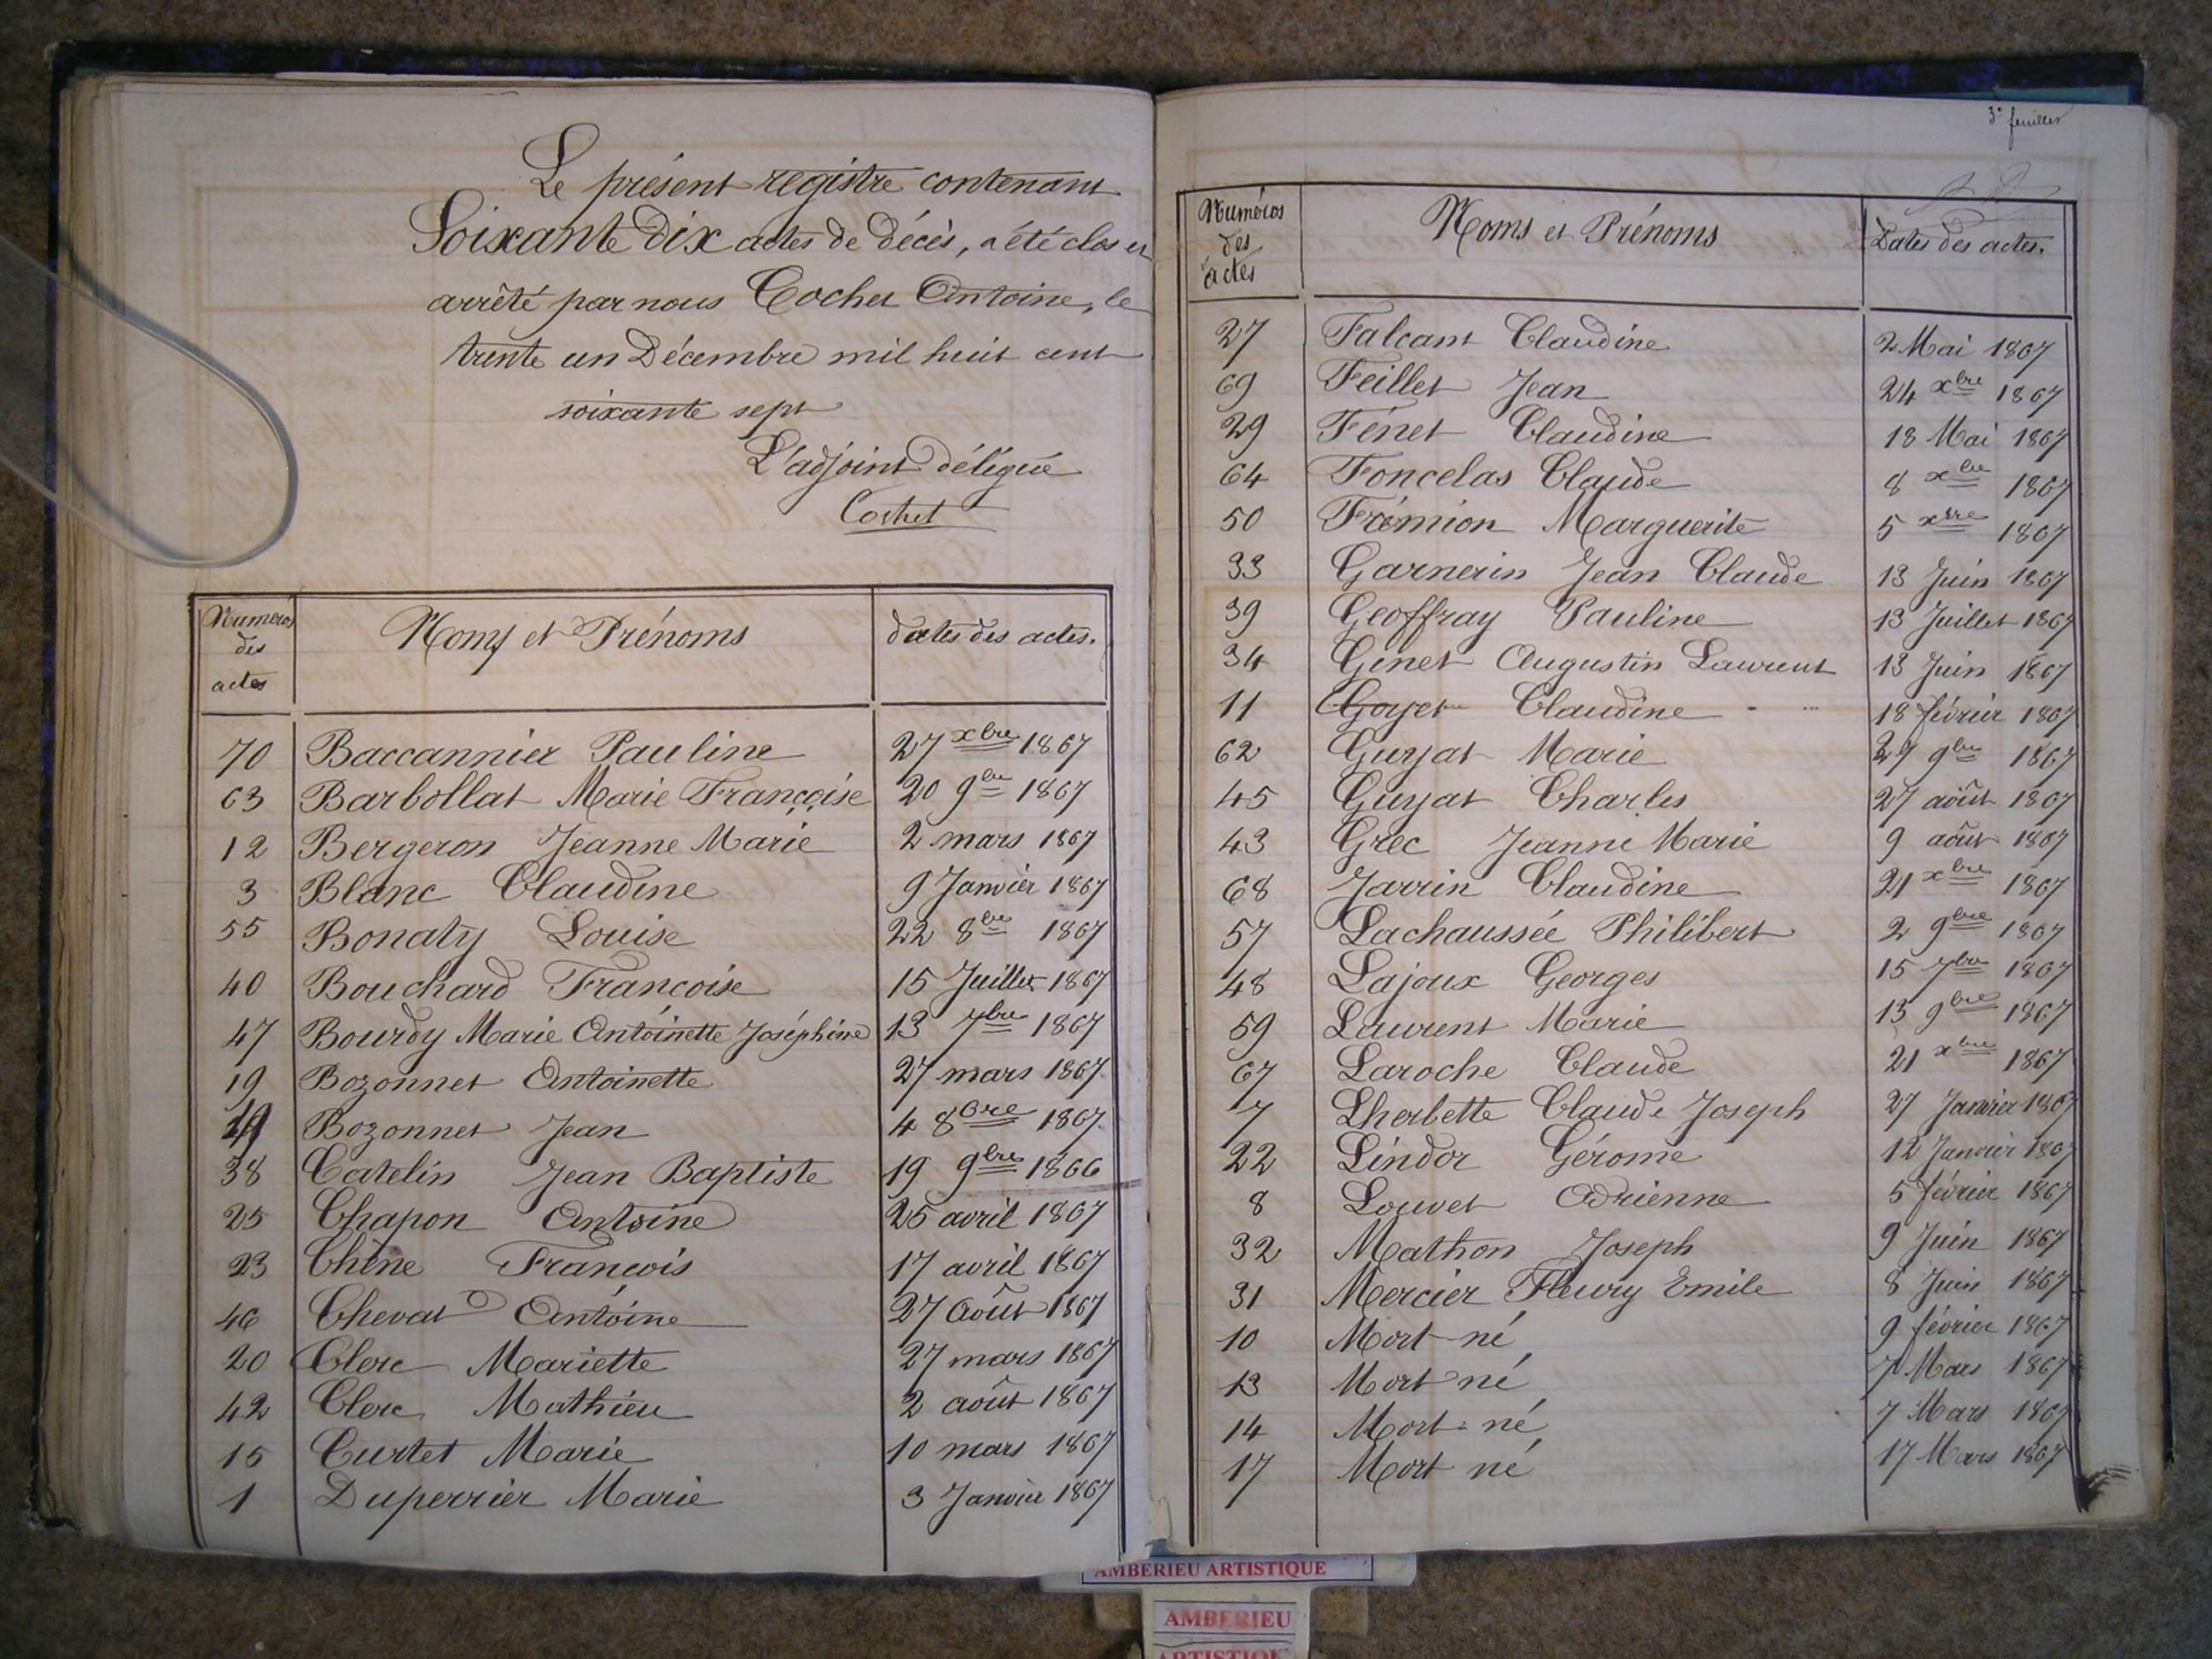 Le présent registre contenant
Soixante Dix actes de décès, a été clos et
arrêté par nous Cochet Antoine, le
trente un Décembre mil huit cent
soixante sept
L'adjoint délégué
Cochet
Numeros des actes Noms et Prénoms dates des actes.
70 Baccannier Pauline 27 xbre 1867
63 Barbollat Marie Françoise 20 9bre 1867
12 Bergeron Jeanne Marie 2 mars 1867
3 Blanc Claudine 9 Janvier 1867
55 Bonaty Louise 22 8bre 1867
40 Bouchard Francoise 15 Juillet 1867
47 Bourdy Marie Antoinette Joséphine 13 7bre 1867
19 Bozonnet Antoinette 27 mars 1867
Bozonnet Jean 4 8bre 1867
38 Catelin Jean Baptiste 19 9bre 1866
25 Chapon Antoine 25 avril 1867
23 Chêne François 17 avril 1867
46 Chevat Antoine 27 Août 1867
20 Clerc Mariette 27 mars 1867
42 Clerc Mathieu 2 août 1867
15 Curtet Marie 10 mars 1867
1 Duperrier Marie 3 Janvier 1867
3e feuillet
Numéros des actes Noms et Prénoms Dates des actes.
27 Falcant Claudine 2 Mai 1867
69 Feillet Jean 24 xbre 1867
29 Fénet Claudine 18 Mai 1867
64 Foncelas Claude 8 xbre 1867
50 Frémion Marguerite 5 xbre 1867
33 Garnerin Jean Claude 13 Juin 1867
39 Geoffray Pauline 13 Juillet 1867
34 Genet Augustin Laurent 13 Juin 1867
11 Goyet Claudine 18 février 1867
62 Guyat Marie 9bre 1867
45 Guyat Charles 27 août 1867
43 Grec Jeanne Marie 9 août 1867
68 Jarrin Claudine 21 xbre 1867
57 Lachaussée Philibert 2 9bre 1867
48 Lajoux Georges 15 7bre 1867
59 Laurent Marie 13 9bre 1867
67 Laroche Claude 21 xbre 1867
7 Lherbette Claude Joseph 27 Janvier 1867
22 Lindor Gérome 12 Janvier 1867
8 Louvet Adrienne 5 février 1867
32 Mathon Joseph 9 Juin 1867
31 Mercier Fleury Emile 8 Juin 1867
10 Mort-né 9 février 1867
13 Mort né 7 Mars 1867
14 Mort-né 7 Mars 1867
17 Mort né 17 Mars 1867
AMBERIEU ARTISTIQUE
AMBERIEU
ARTISTIQUE